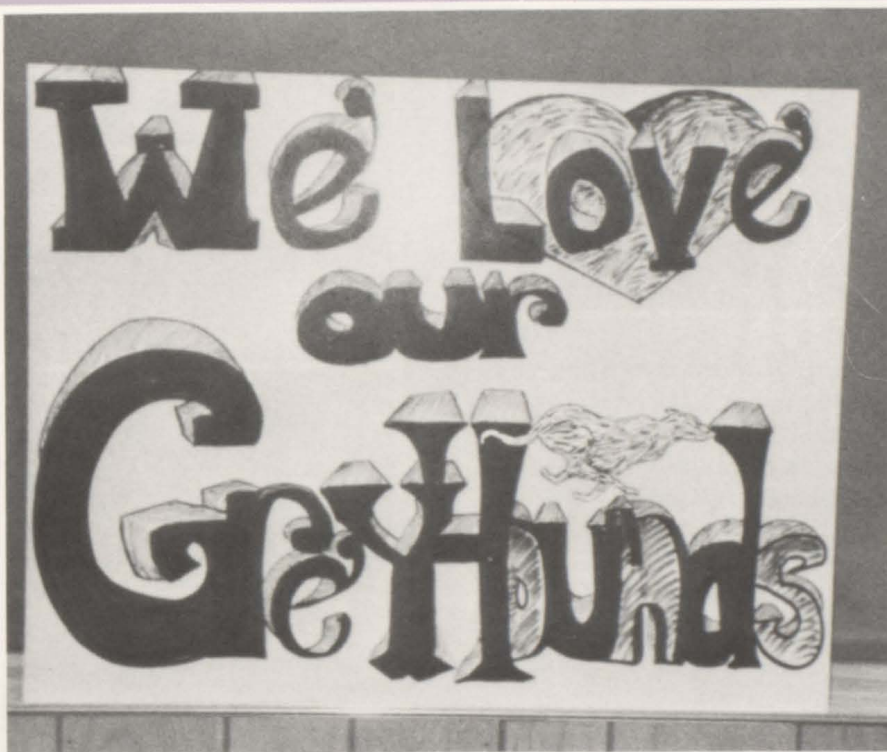 We Love
our
GreyHounds